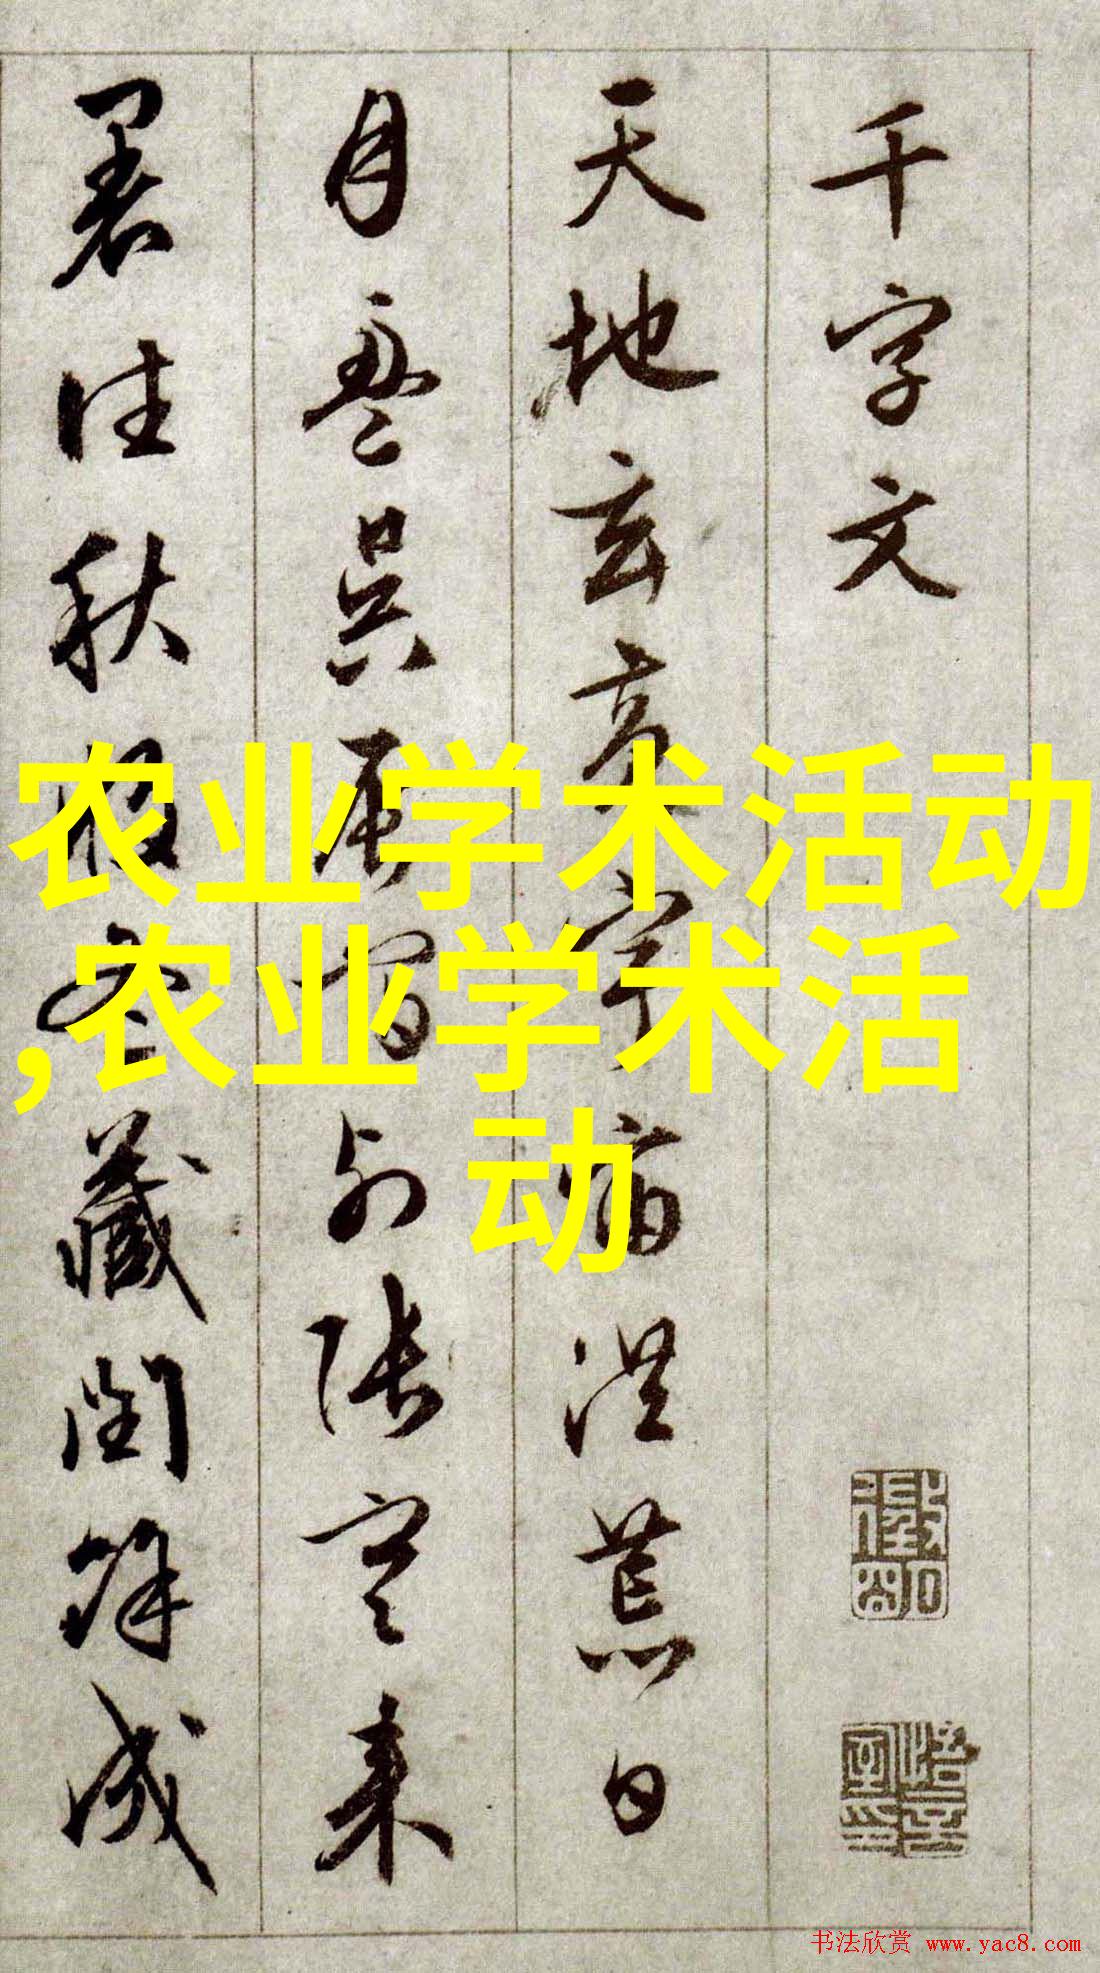 千字文
天地玄黄宇宙洪荒日
月盈昃辰宿列张寒来
暑往秋收冬藏闰馀成
农业学术活动
,农业学术活
动
书法欣赏 www.yac8.com